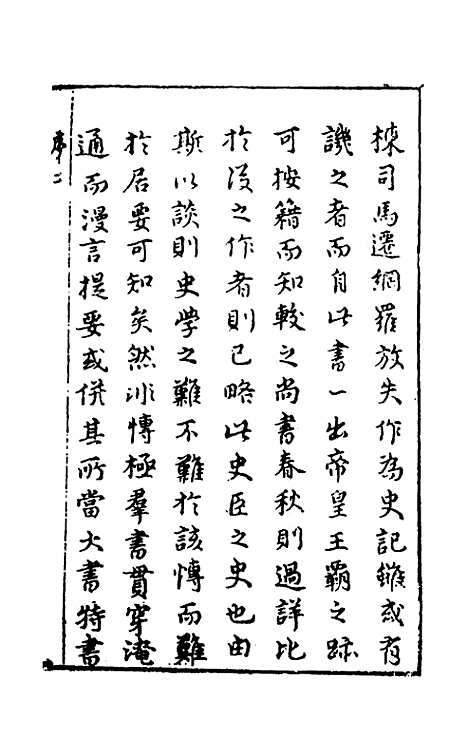 棟司馬遷網羅放失作為史記雖或有
譏之者而自此書一出帝皇王霸之跡
可按籍而知較之尚書春秋則過詳比
於後之作者則已略此史臣之史也由
斯以談則史學之難不難於該博而難
於居要可知矣然非博極羣書貫穿淹
通而漫言提要或併其所當大書特書
序二